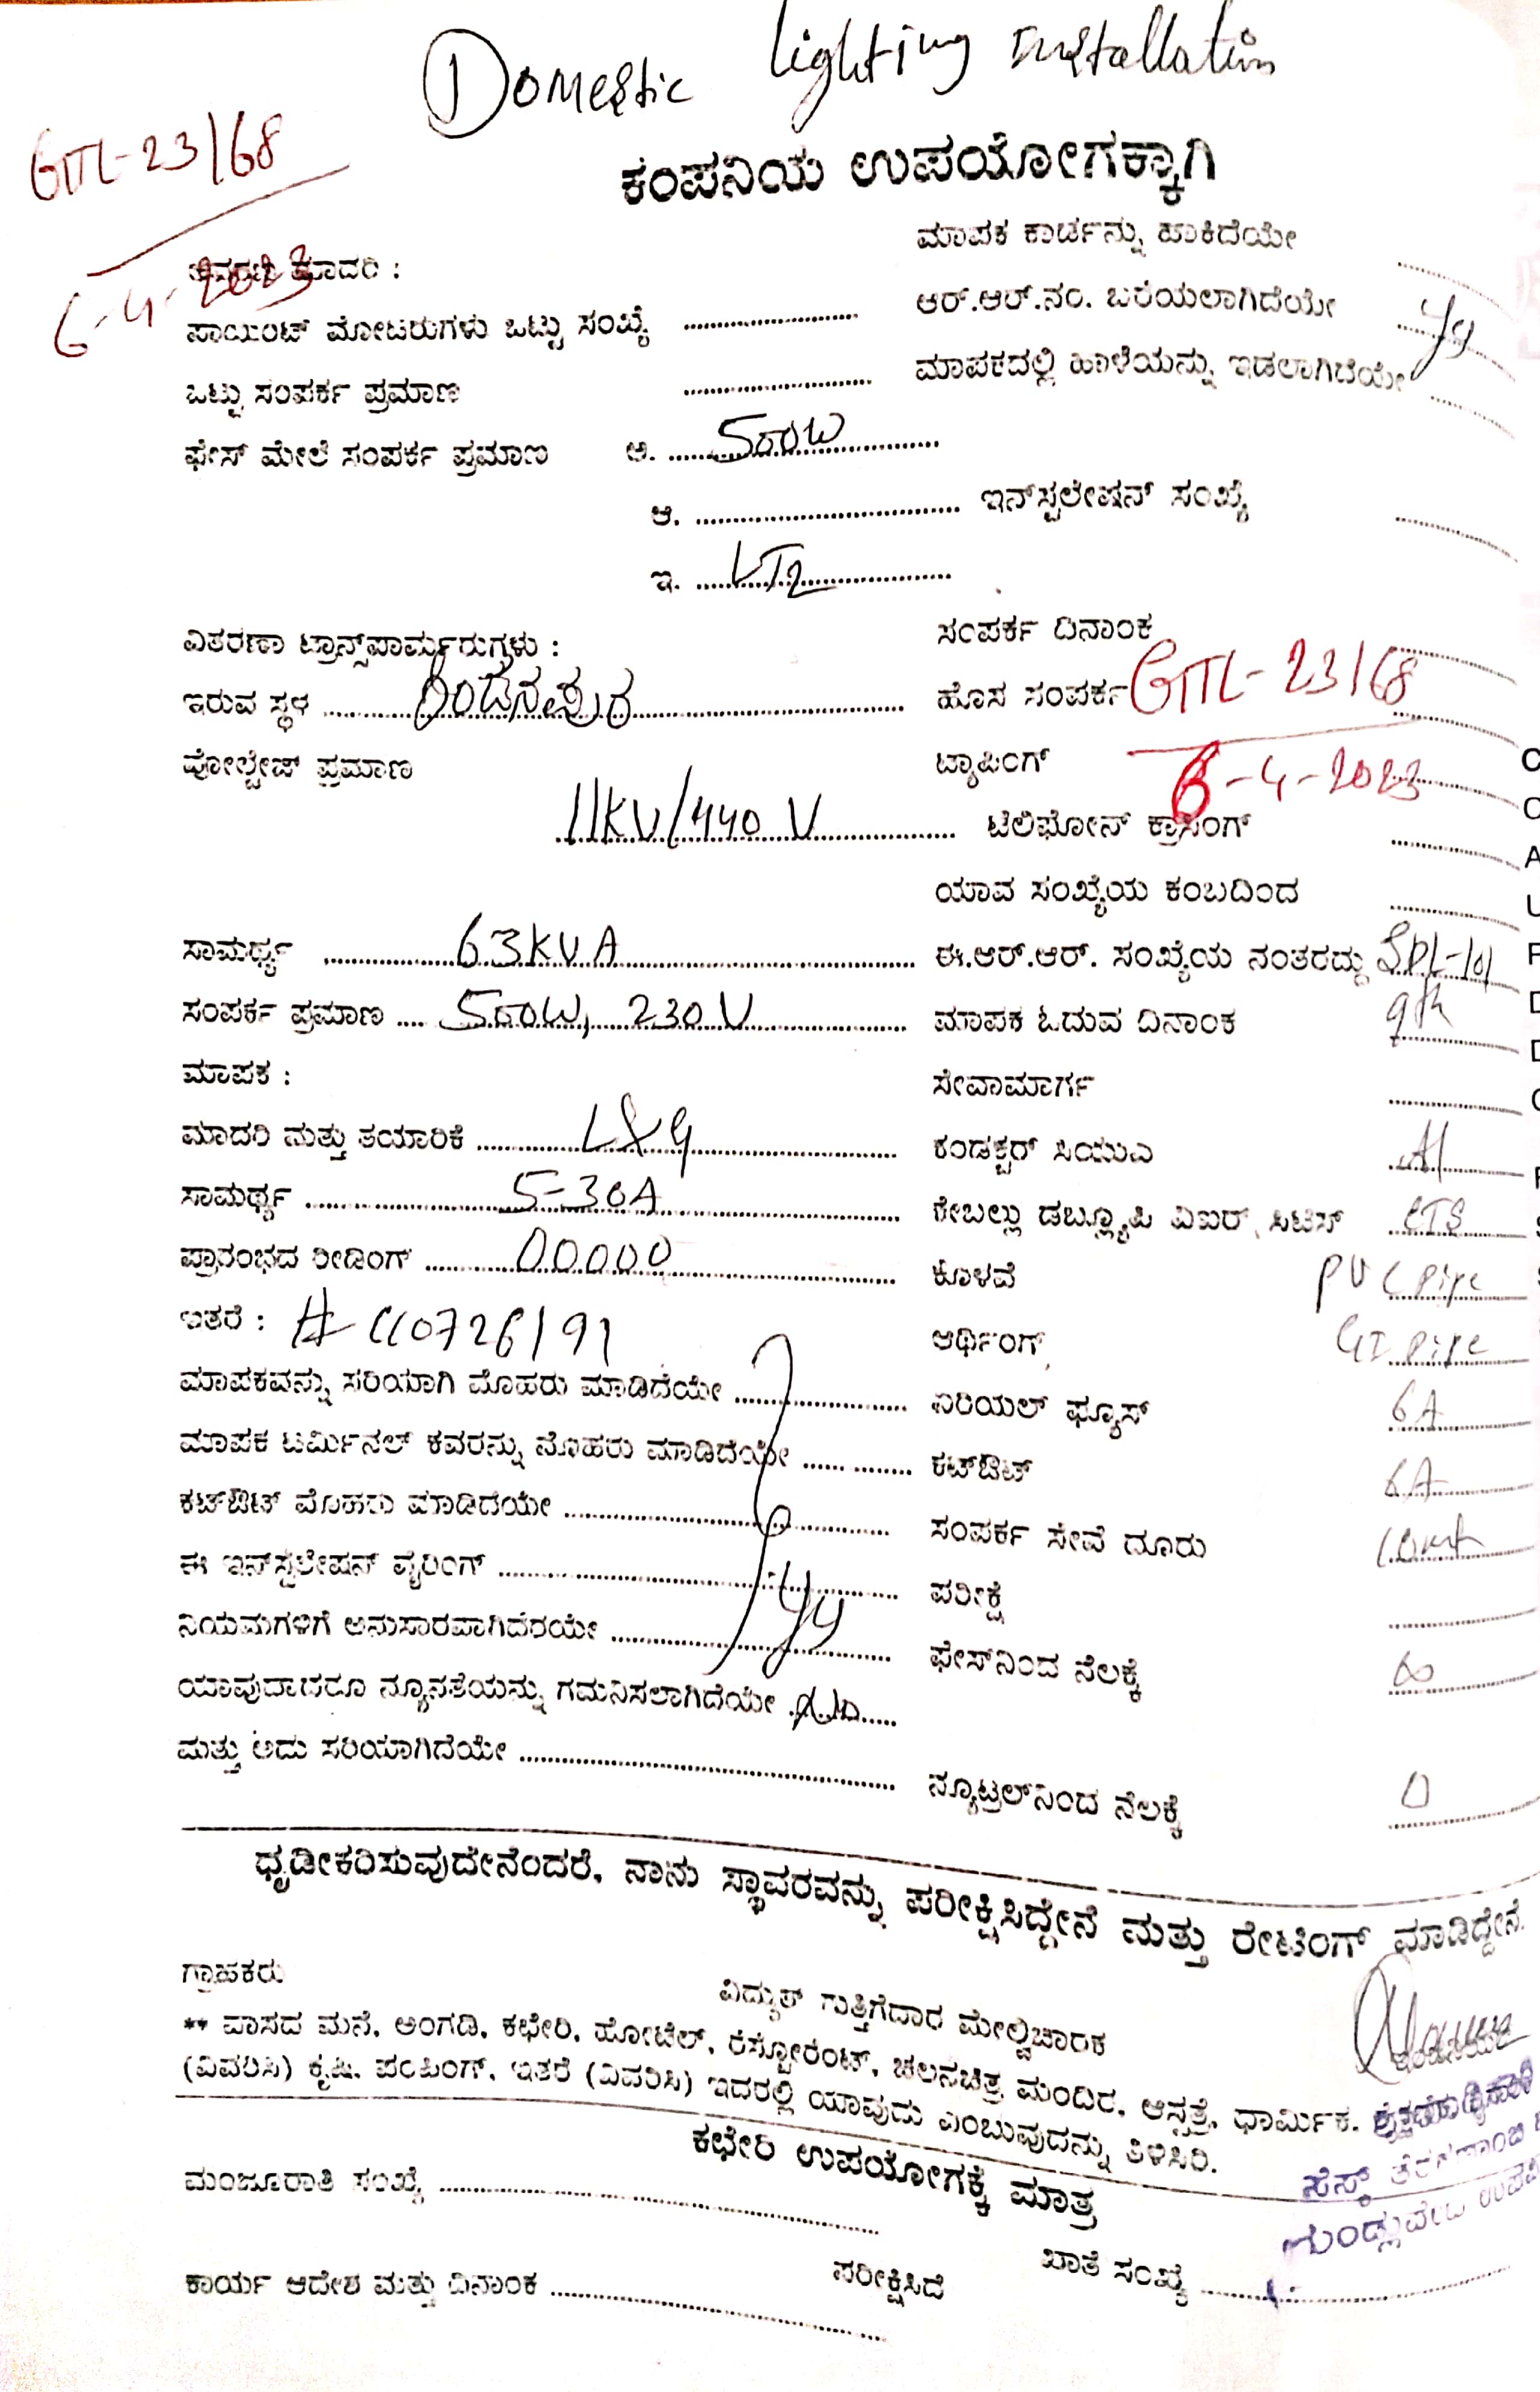 ① Domestic lighting installation
GTL-23/68
6-4-2023
ಕಂಪನಿಯ ಉಪಯೋಗಕ್ಕಾಗಿ
ಮಾದರಿ :
ಮಾಪಕ ಕಾರ್ಡನ್ನು ಹಾಕಿದೆಯೇ
ಪಾಯಿಂಟ್ ಮೋಟರುಗಳು ಒಟ್ಟು ಸಂಖ್ಯೆ
ಆರ್.ಆರ್.ನಂ. ಬರೆಯಲಾಗಿದೆಯೇ
ಒಟ್ಟು ಸಂಪರ್ಕ ಪ್ರಮಾಣ
ಮಾಪಕದಲ್ಲಿ ಹಾಳೆಯನ್ನು ಇಡಲಾಗಿದೆಯೇ
ಫೇಸ್ ಮೇಲೆ ಸಂಪರ್ಕ ಪ್ರಮಾಣ ಅ. 500W
ಆ. ಇನ್‌ಸ್ಟಲೇಷನ್ ಸಂಖ್ಯೆ
ಇ. LT2
ವಿತರಣಾ ಟ್ರಾನ್ಸ್‌ಪಾರ್ಮ್ರರುಗ್ರಳು :
ಸಂಪರ್ಕ ದಿನಾಂಕ
ಇರುವ ಸ್ಥಳ
ಹೊಸ ಸಂಪರ್ಕ GTL-23/68
ವೋಲ್ಟೇಜ್ ಪ್ರಮಾಣ
ಟ್ಯಾಪಿಂಗ್ 6-4-2023
11KV/440 V ಟೆಲಿಫೋನ್ ಕ್ರಾಸಿಂಗ್
ಯಾವ ಸಂಖ್ಯೆಯ ಕಂಬದಿಂದ
ಸಾಮರ್ಥ್ಯ 63KVA
ಈ.ಆರ್.ಆರ್. ಸಂಖ್ಯೆಯ ನಂತರದ್ದು SPL-101
ಸಂಪರ್ಕ ಪ್ರಮಾಣ 500W, 230 V
ಮಾಪಕ ಓದುವ ದಿನಾಂಕ 9th
ಮಾಪಕ :
ಸೇವಾಮಾರ್ಗ
ಮಾದರಿ ಮತ್ತು ತಯಾರಿಕೆ L&G
ಕಂಡಕ್ಟರ್ ಸಿಯುಎ Al
ಸಾಮರ್ಥ್ಯ 5-30A
ಕೇಬಲ್ಲು ಡಬ್ಲ್ಯೂಪಿ ವಿಐರ್ ಸಿಟಿಸ್ CTS
ಪ್ರಾರಂಭದ ರೀಡಿಂಗ್ 00000
ಕೊಳವೆ PVC pipe
ಇತರೆ :
ಆರ್ಥಿಂಗ್ GI pipe
ಮಾಪಕವನ್ನು ಸರಿಯಾಗಿ ಮೊಹರು ಮಾಡಿದೆಯೇ
ಏರಿಯಲ್ ಫ್ಯೂಸ್ 6A
ಮಾಪಕ ಟರ್ಮಿನಲ್ ಕವರನ್ನು ಮೊಹರು ಮಾಡಿದೆಯೇ
ಕಟ್‌ಔಟ್ 6A
ಕಟ್‌ಔಟ್ ಮೊಹರು ಮಾಡಿದೆಯೇ
ಸಂಪರ್ಕ ಸೇವೆ ದೂರು
ಈ ಇನ್‌ಸ್ಟಲೇಷನ್ ವೈರಿಂಗ್
ಪರೀಕ್ಷೆ
ನಿಯಮಗಳಿಗೆ ಅನುಸಾರವಾಗಿದೆರಯೇ
ಫೇಸ್‌ನಿಂದ ನೆಲಕ್ಕೆ ∞
ಯಾವುದಾದರೂ ನ್ಯೂನತೆಯನ್ನು ಗಮನಿಸಲಾಗಿದೆಯೇ No
ಮತ್ತು ಅದು ಸರಿಯಾಗಿದೆಯೇ
ನ್ಯೂಟ್ರಲ್‌ನಿಂದ ನೆಲಕ್ಕೆ 0
ಧೃಡೀಕರಿಸುವುದೇನೆಂದರೆ, ನಾನು ಸ್ಥಾವರವನ್ನು ಪರೀಕ್ಷಿಸಿದ್ದೇನೆ ಮತ್ತು ರೇಟಿಂಗ್ ಮಾಡಿದ್ದೇನೆ.
ಗ್ರಾಹಕರು ವಿದ್ಯುತ್ ಗುತ್ತಿಗೆದಾರ ಮೇಲ್ವಿಚಾರಕ
** ವಾಸದ ಮನೆ, ಅಂಗಡಿ, ಕಛೇರಿ, ಹೋಟೆಲ್, ರೆಸ್ಟೋರೆಂಟ್, ಚಲನಚಿತ್ರ ಮಂದಿರ, ಆಸ್ಪತ್ರೆ, ಧಾರ್ಮಿಕ,
(ವಿವರಿಸಿ) ಕೃಷಿ, ಪಂಪಿಂಗ್, ಇತರೆ (ವಿವರಿಸಿ) ಇದರಲ್ಲಿ ಯಾವುದು ಎಂಬುವುದನ್ನು ತಿಳಿಸಿರಿ.
ಕಛೇರಿ ಉಪಯೋಗಕ್ಕೆ ಮಾತ್ರ
ಮಂಜೂರಾತಿ ಸಂಖ್ಯೆ
ಕಾರ್ಯ ಆದೇಶ ಮತ್ತು ದಿನಾಂಕ ಪರೀಕ್ಷಿಸಿದೆ ಖಾತೆ ಸಂಖ್ಯೆ